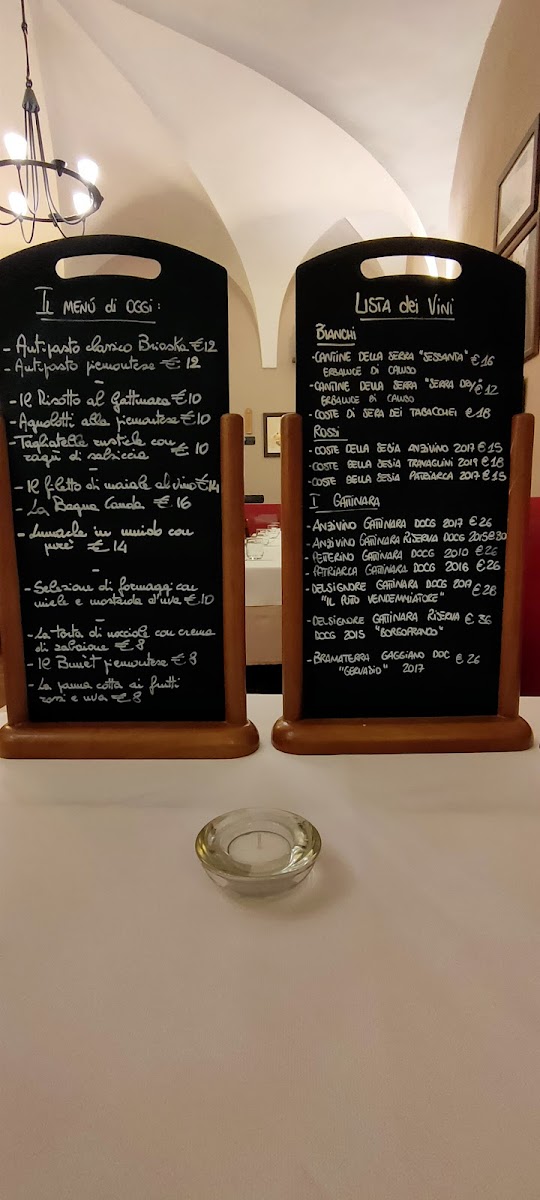 IL MENÚ di OGGI:
- Antipasto classico Brioska €12
- Antipasto piemontese € 12
-
- Il Risotto al Gattinara €10
- Agnolotti alla piemontese €10
- Tagliatelle rustiche con
ragù di salsiccia € 10
-
- Il filetto di maiale al vino €14
- La Bagna Cauda € 16
- Lumache in umido con
purè € 14
-
- Selezione di formaggi con
miele e mostarda d'uva €10
-
- La torta di nocciole con crema
di zabaione € 8
- Il Bunèt piemontese € 8
- La panna cotta ai frutti
rossi e uva € 8
LISTA dei VINI
BIANCHI
- CANTINE DELLA SERRA "SESSANTA" € 16
ERBALUCE DI CALUSO
- CANTINE DELLA SERRA "SERRA DRY" € 12
ERBALUCE DI CALUSO
- COSTE DI SERA DEI TABACCHEI € 18
ROSSI
- COSTE DELLA SESIA ANZIVINO 2017 € 15
- COSTE DELLA SESIA TRAVAGLINI 2019 € 18
- COSTE DELLA SESIA PATRIARCA 2017 € 15
I GATTINARA
- ANZIVINO GATTINARA DOCG 2017 € 26
- ANZIVINO GATTINARA RISERVA DOCG 2015 € 30
- PETTERINO GATTINARA DOCG 2010 € 26
- PATRIARCA GATTINARA DOCG 2016 € 26
- DELSIGNORE GATTINARA DOCG 2017 € 28
"IL PUTO VENDEMMIATORE"
- DELSIGNORE GATTINARA RISERVA € 36
DOCG 2015 "BORGOFRANCO"
- BRAMATERRA GAGGIANO DOC € 26
"GERVASIO" 2017